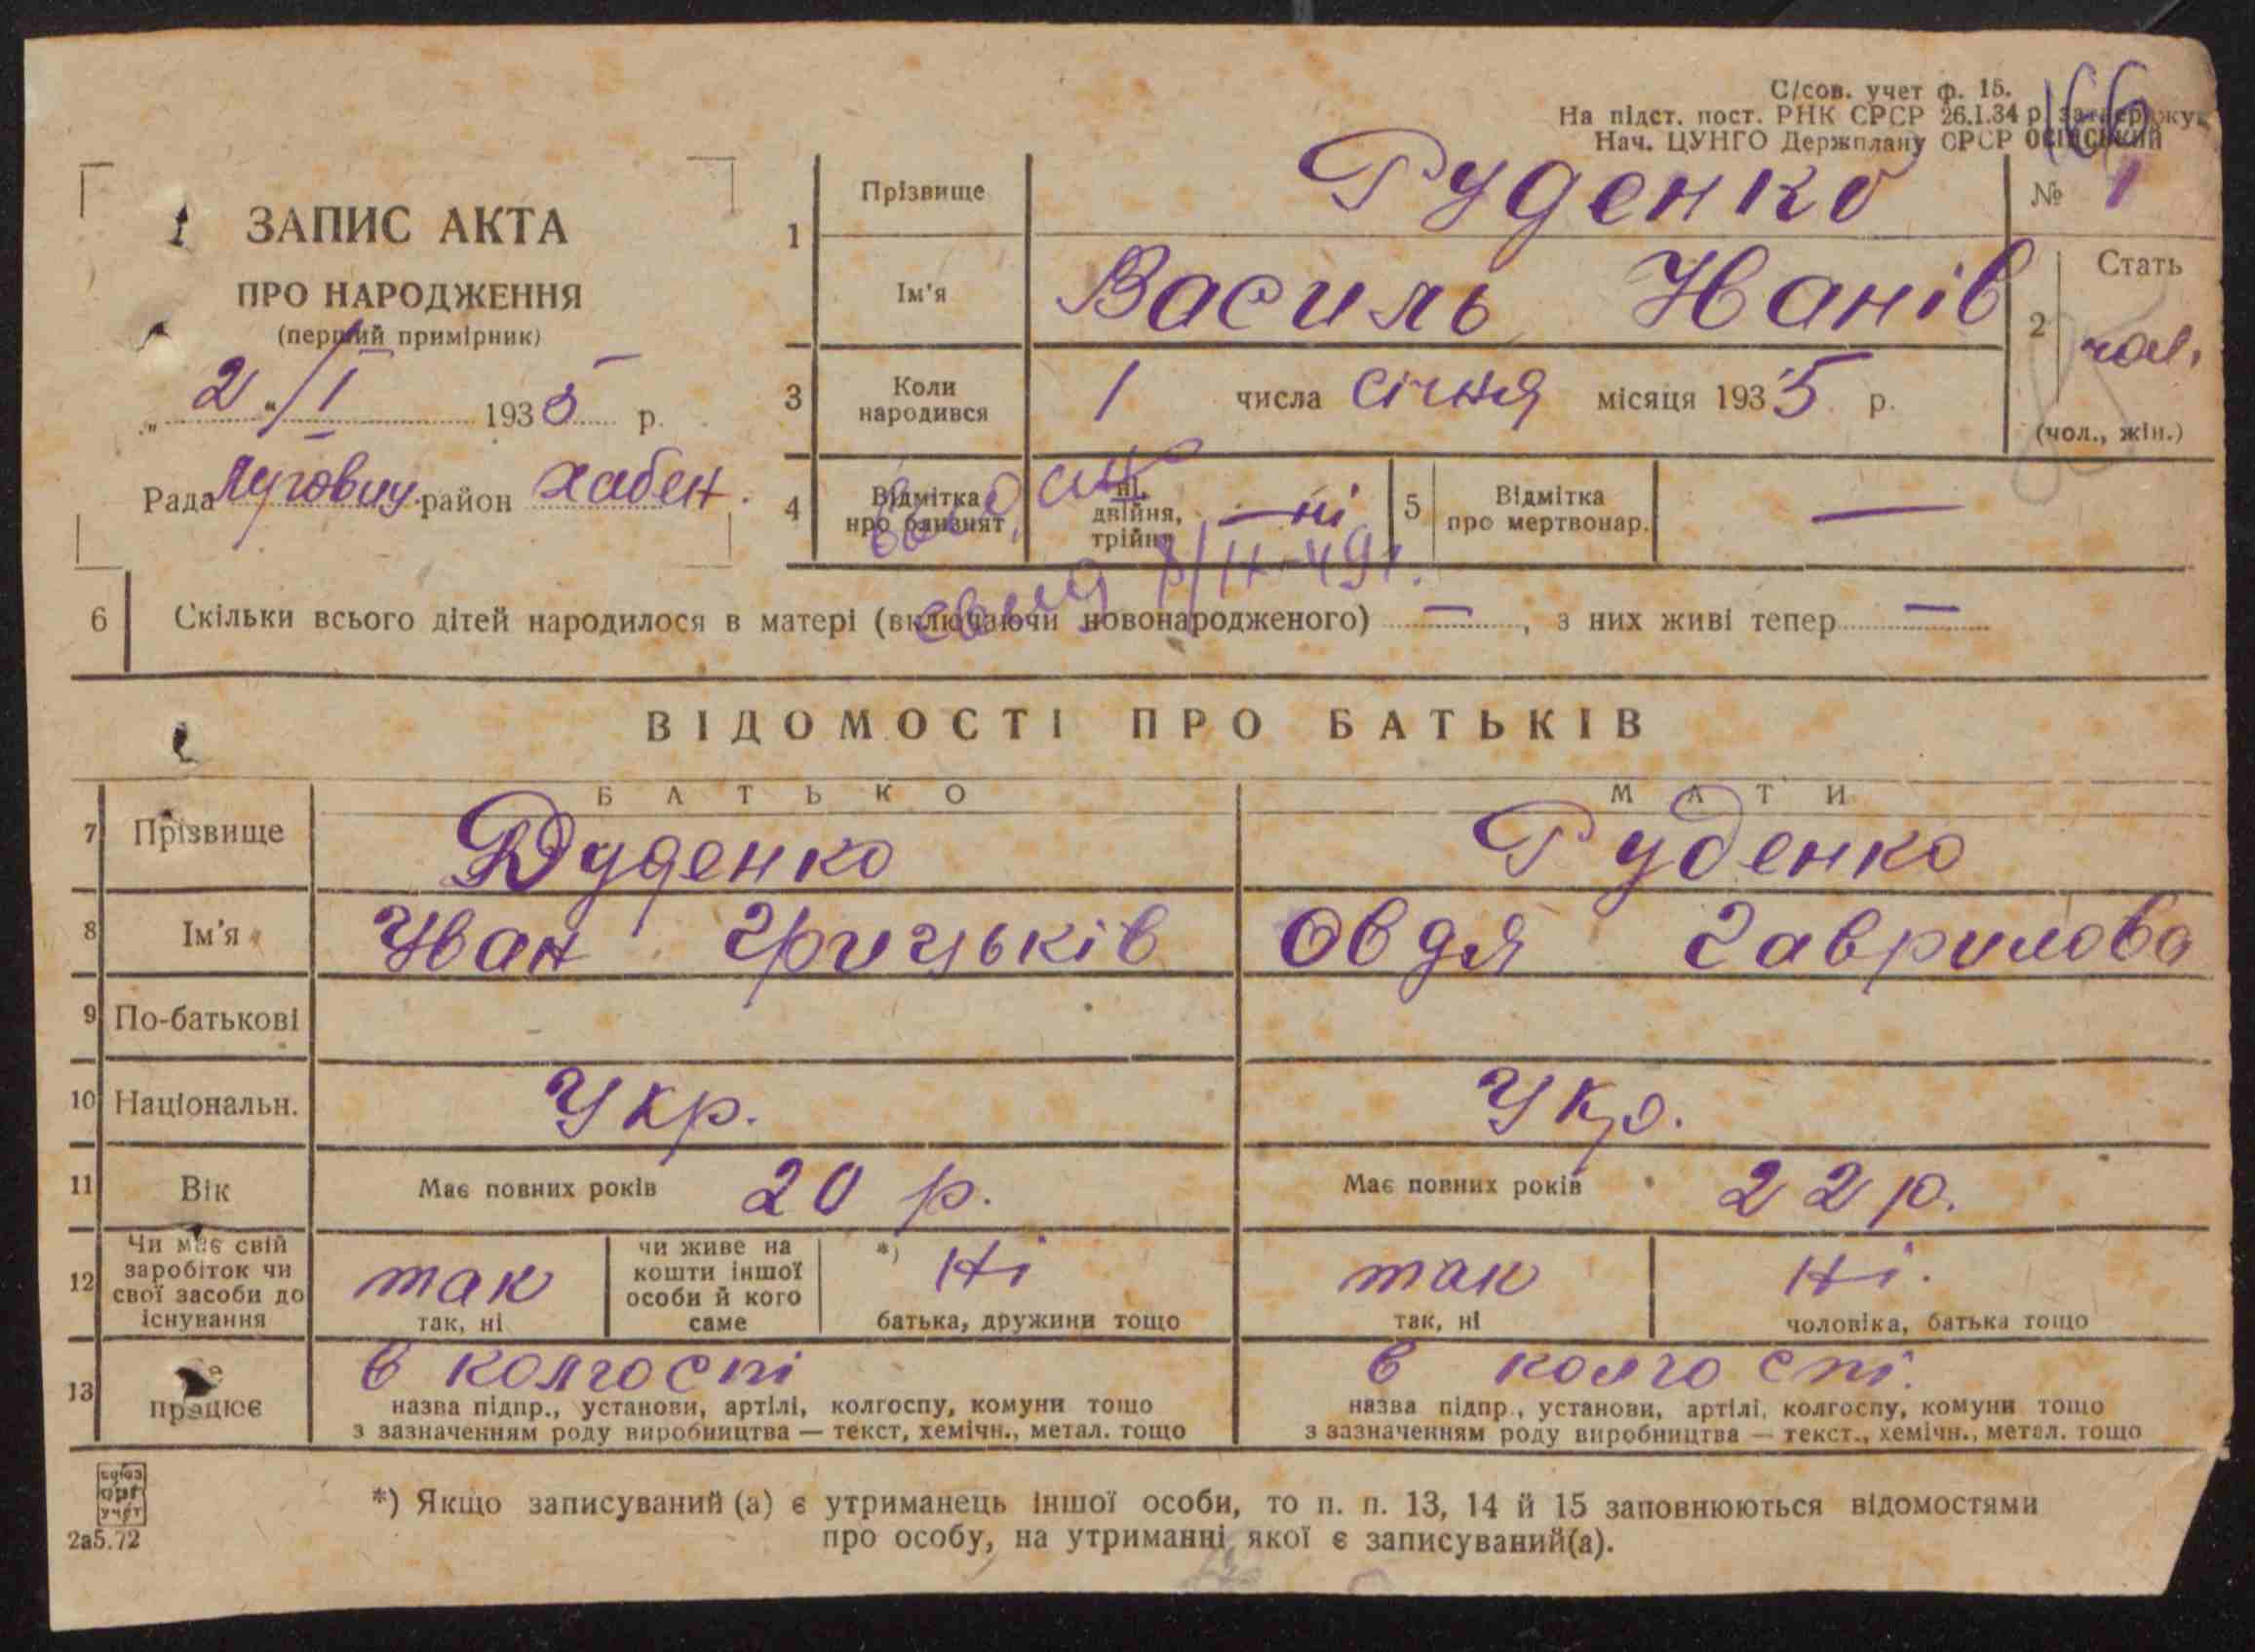 С/сов. учет ф. 15.
На підст. пост. РНК СРСР 26.1.34 р. затверджую
Нач. ЦУНГО Держплану СРСР ОСІНСЬКИЙ
166
ЗАПИС АКТА
ПРО НАРОДЖЕННЯ
(перший примірник)
„2“/I 1935 р.
Рада Луговиц. район Хабен.
1 Прізвище Руденко № 1
Ім'я Василь Иванів
2 Стать чол. (чол., жін.)
3 Коли народився 1 числа січня місяця 1935 р.
4 Відмітка про близнят ні, двійня, трійня — ні
5 Відмітка про мертвонар. —
6 Скільки всього дітей народилося в матері (включаючи новонародженого) —, з них живі тепер —
ВІДОМОСТІ ПРО БАТЬКІВ
БАТЬКО МАТИ
7 Прізвище Руденко Руденко
8 Ім'я Иван Грицьків Овдя Гаврилова
9 По-батькові
10 Національн. Укр. Укр.
11 Вік Має повних років 20 р. Має повних років 22 р.
12 Чи має свій заробіток чи свої засоби до існування так так, ні чи живе на кошти іншої особи й кого саме *) Ні батька, дружини тощо так так, ні Ні. чоловіка, батька тощо
13 працює в колгоспі в колгоспі.
назва підпр., установи, артілі, колгоспу, комуни тощо назва підпр., установи, артілі, колгоспу, комуни тощо
з зазначенням роду виробництва — текст, хемічн., метал. тощо з зазначенням роду виробництва — текст., хемічн., метал. тощо
союз
орг
учет
2а5.72
*) Якщо записуваний (а) є утриманець іншої особи, то п. п. 13, 14 й 15 заповнюються відомостями
про особу, на утриманні якої є записуваний(а).